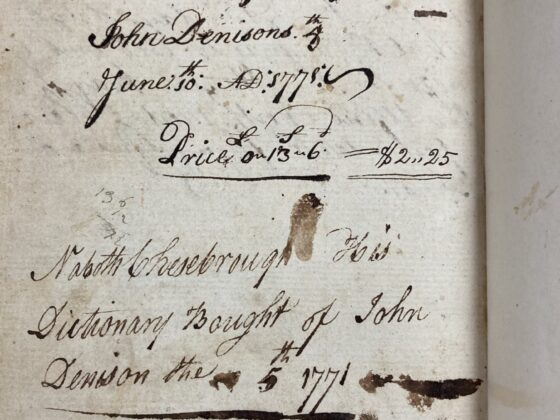 John Denisons. 4th
June: 10th: AD: 1771:
Price £0〃13s〃6d = $2〃25
136
12
Naboth Chesebrough His
Dictionary Bought of John
Denison the 5th 1771